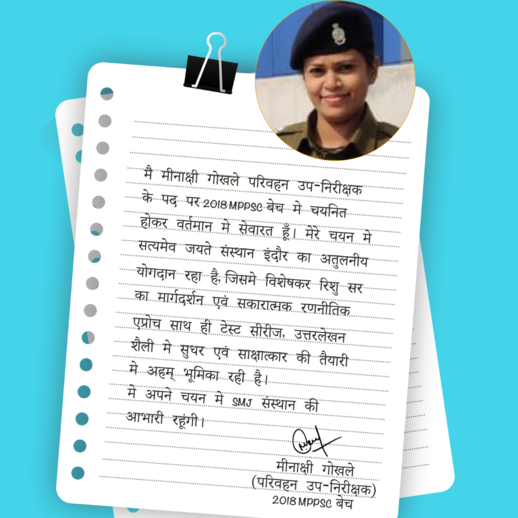 मै मीनाक्षी गोखले परिवहन उप-निरीक्षक
के पद पर 2018 MPPSC बेच मे चयनित
होकर वर्तमान मे सेवारत हूँ। मेरे चयन मे
सत्यमेव जयते संस्थान इंदौर का अतुलनीय
योगदान रहा है, जिसमे विशेषकर रिशु सर
का मार्गदर्शन एवं सकारात्मक रणनीतिक
एप्रोच साथ ही टेस्ट सीरीज, उत्तरलेखन
शैली मे सुधर एवं साक्षात्कार की तैयारी
मे अहम् भूमिका रही है।
मे अपने चयन मे SMJ संस्थान की
आभारी रहूंगी।
मीनाक्षी गोखले
(परिवहन उप-निरीक्षक)
2018 MPPSC बेच